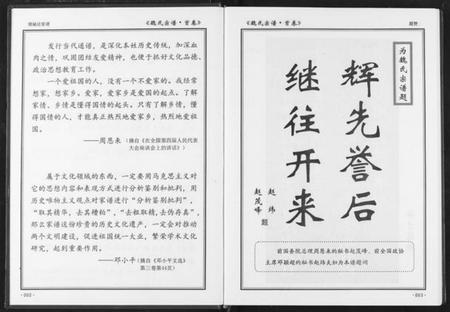 《魏氏宗谱·首卷》
发行当代通谱，是深化本社历史传统，加深血
肉之情，巩固团结友爱精神，也便于抓好文化品德、
政治思想教育工作。
一个爱祖国的人，没有一个不爱家的。我经常
想家，想家乡。爱家，爱家乡是爱国的起点。了解
家情、乡情是懂得国情的起头。只有了解乡情，懂
得国情的人，才能真正热烈地爱家乡、热烈地爱祖
国。
——周恩来（摘自《在全国第四届人民代表
大会座谈会上的讲话》）
属于文化领域的东西，一定要用马克思主义对
它的思想内容和表现方式进行分析鉴别和批判，用
历史唯物主义观点对家谱进行“分析鉴别批判”，
“取其精华，去其糟粕”，“去粗取精，去伪存真”，
那么家谱这份珍贵的历史文化遗产，一定会对推动
两个文明建设，促进祖国统一大业，繁荣学术文化
研究，起到重要作用。
——邓小平（摘自《邓小平文选》
第三卷第44页）
· 002 ·
《魏氏宗谱·首卷》
题赞
为魏氏宗谱题
辉先誉后
继往开来
赵炜
赵茂峰
题
前国务院总理周恩来的秘书赵茂峰、前全国政协
主席邓颖超的秘书赵炜夫妇为本谱题词
· 003 ·